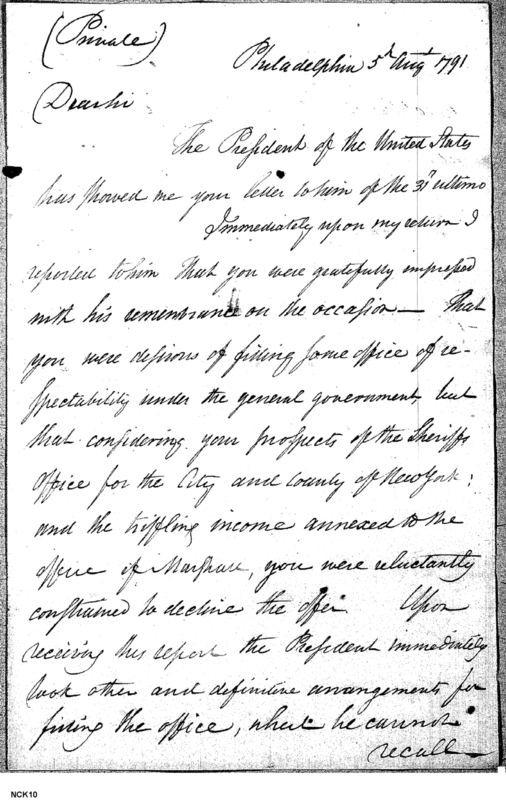 (Private)
Philadelphia 5th Augt 1791
Dear sir
The President of the United States
has showed me your letter to him of the 31st ultimo
Immediately upon my return I
reported to him that you were gratefully impressed
with his remembrance on the occasion — That
you were desirous of filling some office of re-
spectability under the general government but
that considering your prospects of the Sheriffs
Office for the City and County of New York;
and the triffling income annexed to the
office of Marshall, you were reluctantly
constrained to decline the offer. Upon
receiving this report the President immediately
took other and definitive arrangements for
filling the office, which he cannot
recall—
NCK10